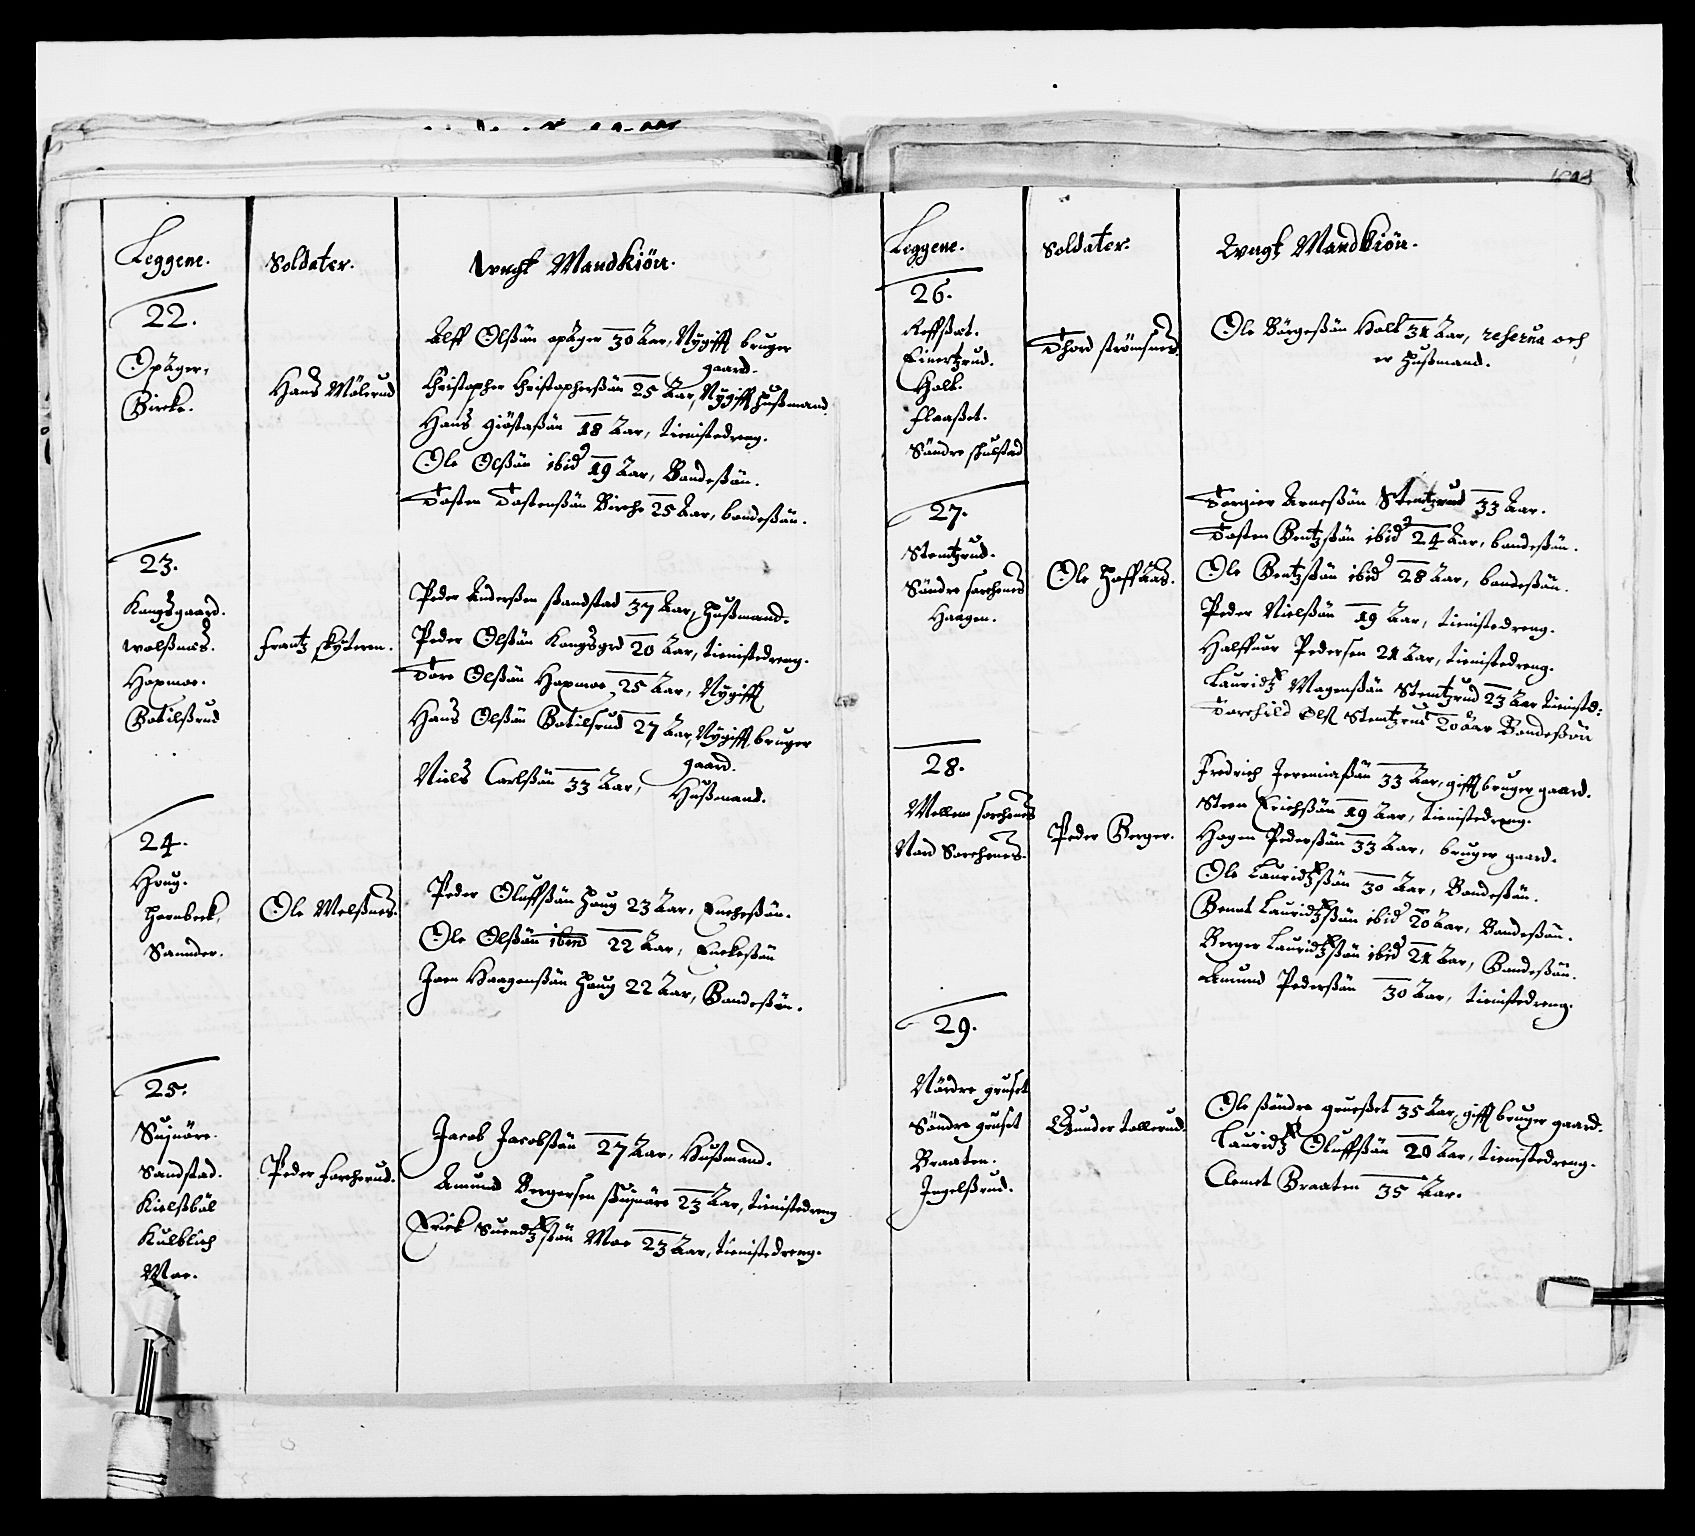 Leggene.
Soldater.
Ungt Mandkiön.
22.
Opäger,
Bircke.
Hans Mölerud
Alff Olßön opäger 30 Aar, Nygifft bruger
gaard.
Christopher Christopherßön 25 Aar, Nygifft Hußmand.
Hans Giöstaßön 18 Aar, tienistedreng.
Ole Olßön ibid 19 Aar, Bondeßön.
Tosten Tostenßön Birche 25 Aar, bondeßön.
23.
Kongsgaard.
Wolßnæs.
Hapmoe.
Botilßrud
Frantz skyteren.
Peder Anderßen ßandstad 37 Aar, Hußmand.
Peder Olßön Kongsgrd 20 Aar, tienistedreng.
Tore Olßön Hapmoe 25 Aar, Nygifft
Hans Olßön Botilsrud 27 Aar, Nygifft, bruger
gaard.
Niels Carlßön 33 Aar, Hußmand.
24.
Houg.
Hornbeck,
Sannder.
Ole Melßnes.
Peder Oluffßön Houg 23 Aar, Encheßön.
Ole Olßön ibid 22 Aar, Enckeßön
Joen Haagenßön Houg 22 Aar, Bondeßön.
25.
Sujnöre.
Sandstad.
Kielßböl
Kulblich
Moe.
Peder Forcherud.
Jacob Jacobßön 27 Aar, Hußmand.
Amund Bergersen ßujnöre 23 Aar, tienistedreng
Erick Suendtzßön Moe 23 Aar, tienistedreng.
Leggene.
Soldater.
Ungt Mandkiön.
26.
Reffßet.
Einertzrud.
Holt.
Flaaßet.
Söndre skulstad
Thord strömsnes.
Ole Börgeßön Holt 31 Aar, reserua och
er Hußmand.
27.
Stemtzrud.
Söndre sorchenes
Haagen.
Ole Hoffaas.
Torgier Arneßön Stemtzrud 33 Aar.
Tosten Bentzßön ibid 24 Aar, bondeßön.
Ole Bentzßön ibid 28 Aar, bondeßön.
Peder Nielßön 19 Aar, tienistedreng.
Halffuor Pedersen 21 Aar, tienistedreng.
Lauridtz Magenßön Stemtzrud 23 Aar tienisted:
Torchild Olss Stemtzrud 20 Aar Bondeßön
28.
Mellem sorchenes
Nord Sorchenes.
Peder Berger.
Fredrich Jeremiaßön 33 Aar, gifft, bruger gaard.
Steen Erichßön 19 Aar, tienistedreng.
Hagen Pederßön 33 Aar, bruger gaard.
Ole Lauridtzßön 30 Aar, Bondeßön.
Bernt Lauridtzßön ibid 20 Aar, Bondeßön.
Berger Lauridtzßön ibid 21 Aar, Bondeßön.
Amund Pederßön 30 Aar, tienistedreng.
29.
Nördre gruset
Söndre gruset
Braaten.
Ingelßrud.
Gunder tollerud.
Ole ßöndre grueßet 35 Aar, gifft bruger gaard.
Lauridtz Oluffßön 20 Aar, tienistedreng.
Clemet Braaten 35 Aar.